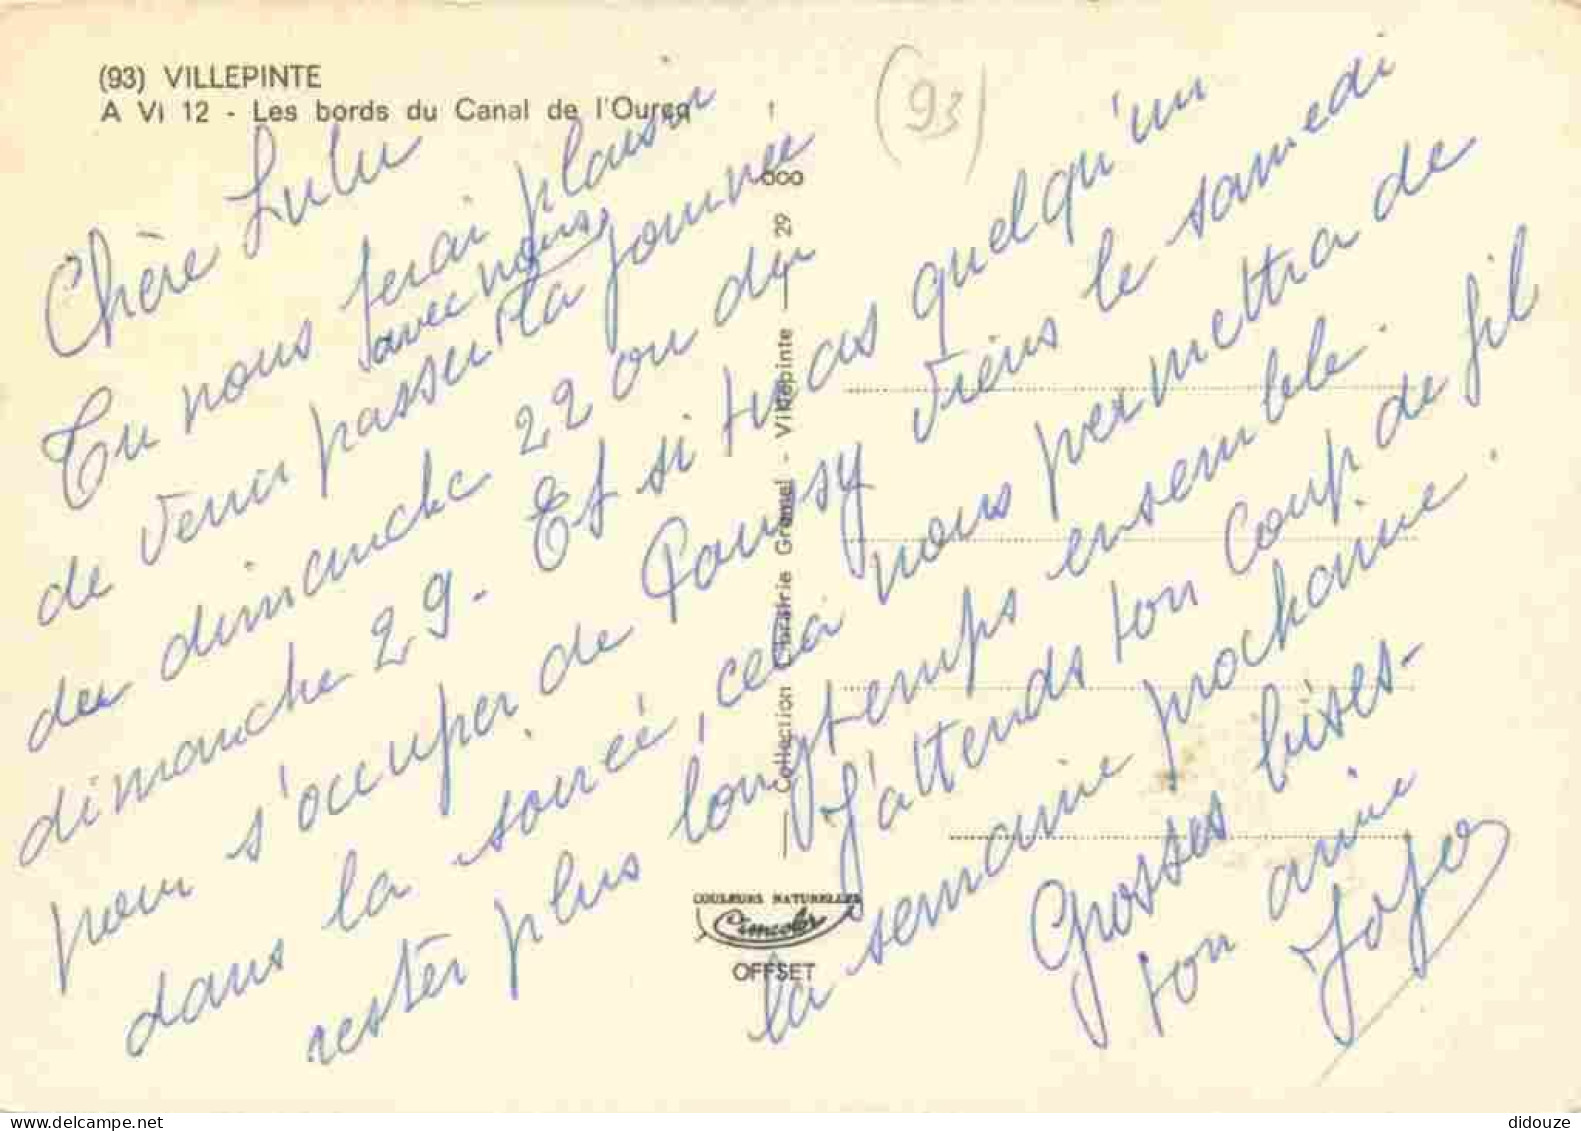 (93) VILLEPINTE
A Vi 12 - Les bords du Canal de l'Ourcq
(93)
Chère Lulu
Tu nous ferai plaisir
de venir passer avec nous, la journée
du dimanche 22 ou du
dimanche 29. Et si tu as quelqu'un
pour s'occuper de Pansy viens le samedi
dans la soirée, cela nous permettra de
rester plus longtemps ensemble.
J'attends ton coup de fil
la semaine prochaine.
Grosses bises-
ton amie
Jojo
Collection Librairie Gramel - Villepinte
29
000
COULEURS NATURELLES
Cimcolor
OFFSET
didouze